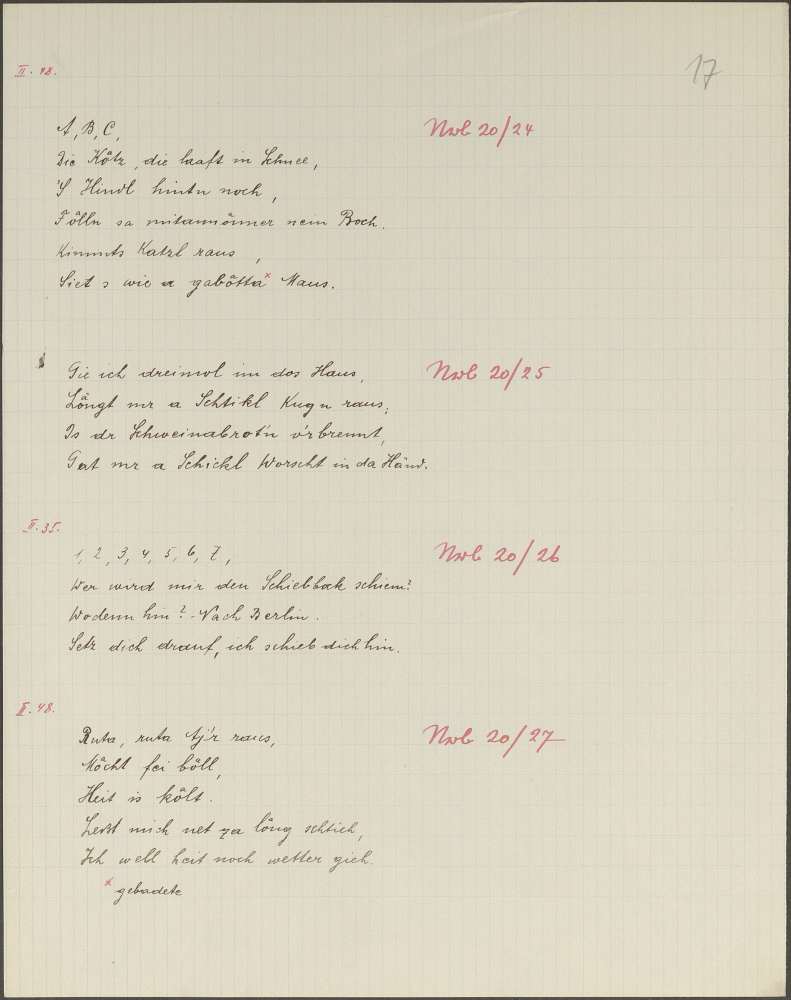 17
II. 48.
A, B, C, Nwb 20/24
Die Kåtz, die laaft in Schnee,
'S Hindl hintn noch,
Fölln sa mitannånner nein Boch.
Kimmts Katzl raus,
Siet s wie a gaböttax Maus.
Gie ich dreimol im dos Haus, Nwb 20/25
Långt mr a Schtikl Kugn raus;
Is dr Schweinabrot'n v'rbrennt,
Gat mr a Schickl Worscht in da Händ.
II. 35.
1, 2, 3, 4, 5, 6, 7, Nwb 20/26
Wer wird mir den Schiebbock schiem?
Wodenn hin? - Nach Berlin.
Setz dich drauf, ich schieb dich hin.
II. 48.
Ruta, ruta Aj'r raus, Nwb 20/27
Möcht fei böll,
Heit is kålt.
Leßt mich net za lång schtieh,
Ich well heit noch wetter gieh.
x gebadete